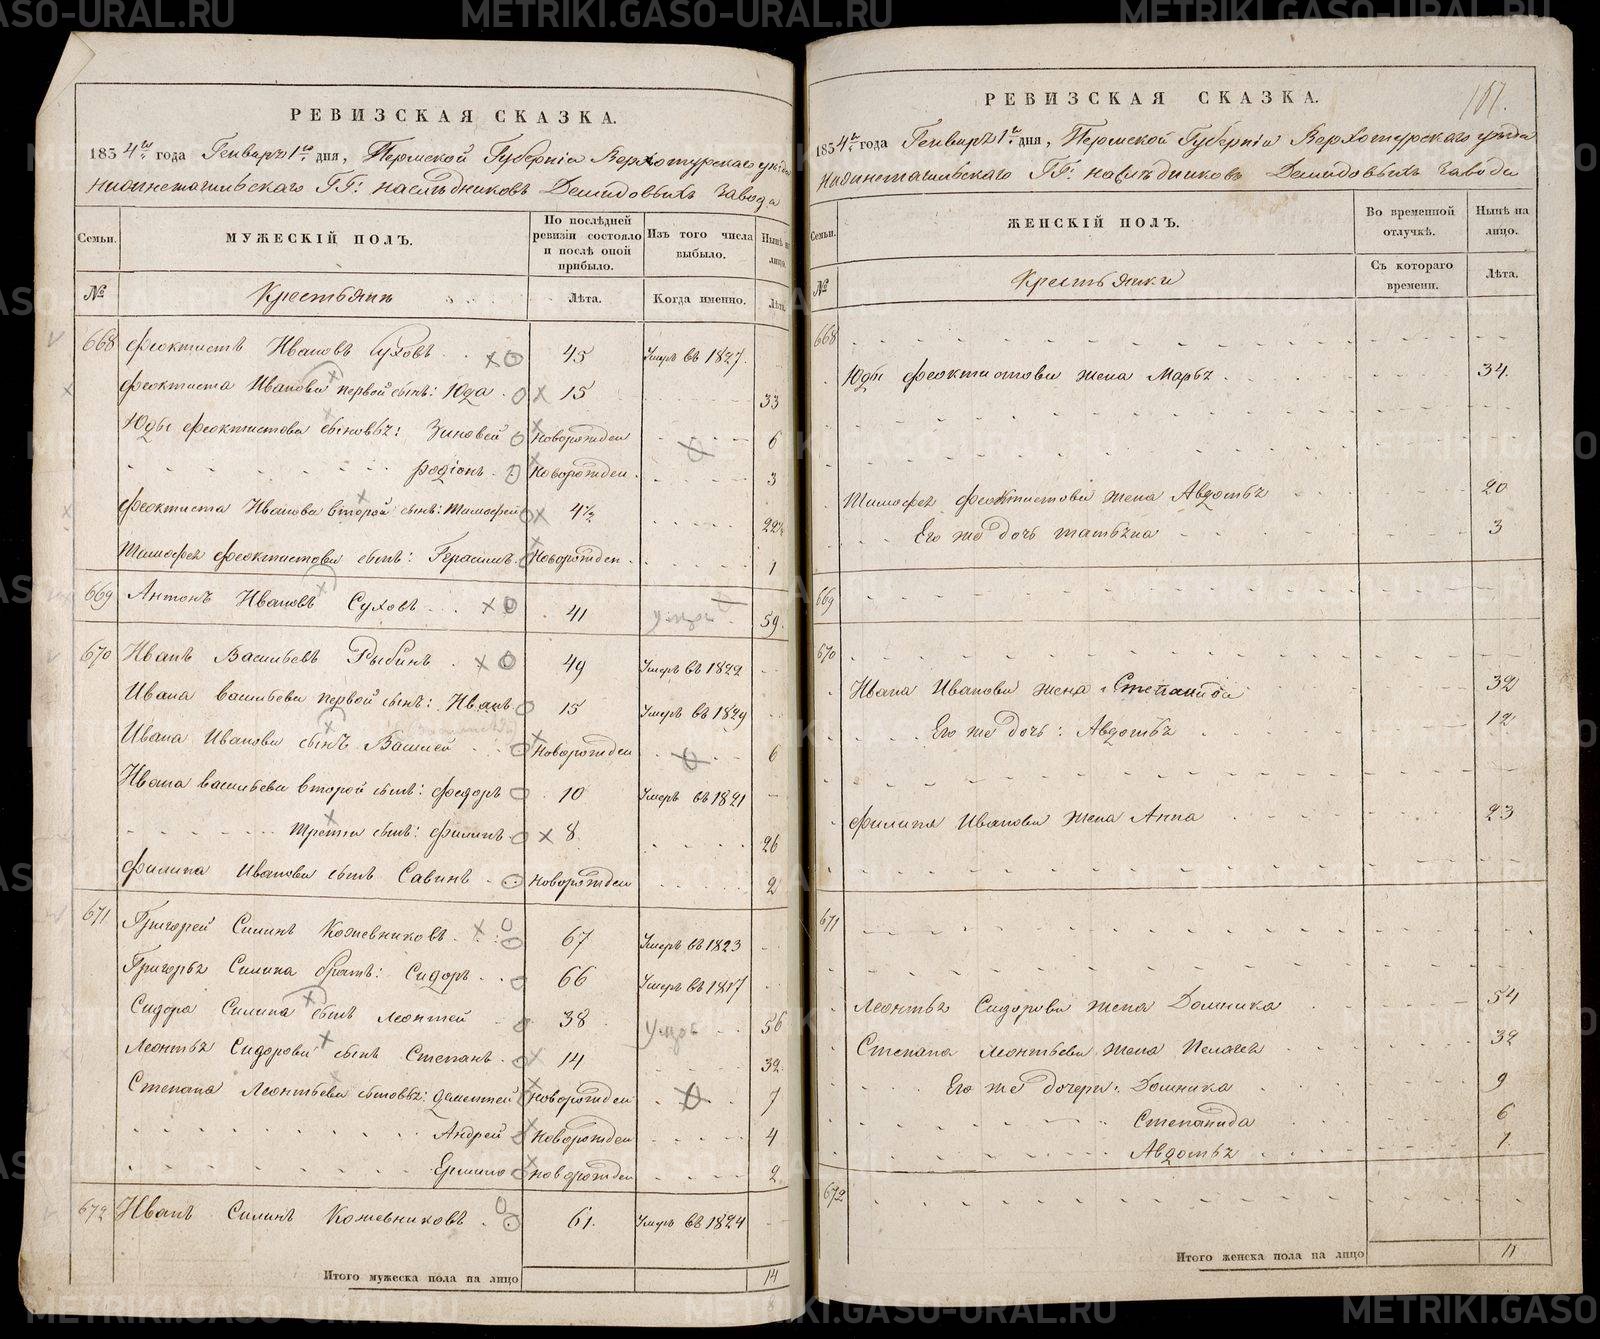 РЕВИЗСКАЯ СКАЗКА.
1834го года Генваря 1го дня, Пермской Губернiи Верхотурскаго уезда
Нижнетагильскаго ГГ: наследниковъ Демидовыхъ Завода
Семьи.
МУЖЕСКIЙ ПОЛЪ.
По послѣдней ревизiи состояло и послѣ оной прибыло.
Изъ того числа выбыло.
Нынѣ на лицо.
№
Крестьянъ
Лѣта.
Когда именно.
Лѣта.
668 Феоктистъ Ивановъ Суховъ 45 Умеръ въ 1827
Феоктиста Иванова первой сынъ: Юда 15 33
Юды Феоктистова сыновья: Зиновей Новорожден 6
Родiонъ Новорожден 3
Феоктиста Иванова второй сынъ: Тимофей 4½ 22½
Тимофея Феоктистова сынъ: Герасимъ Новорожден 1
669 Антонъ Ивановъ Суховъ 41 умеръ 59
670 Иванъ Васильевъ Рыбинъ 49 Умеръ въ 1822
Ивана Васильева первой сынъ: Иванъ 15 Умеръ въ 1829
Ивана Иванова сынъ Василей Новорожден 6
Ивана Васильева второй сынъ: Федоръ 10 Умеръ въ 1821
третiй сынъ: Филипъ 8 26
Филипа Иванова сынъ Савинъ Новорожден 2
671 Григорей Силинъ Кожевниковъ 67 Умеръ въ 1823
Григорья Силина братъ: Сидоръ 66 Умеръ въ 1817
Сидора Силина сынъ Леонтей 38 умеръ 56
Леонтья Сидорова сынъ Степанъ 14 32
Степана Леонтьева сыновья: Дементей Новорожден 7
Андрей Новорожден 4
Ермило Новорожден 2
672 Иванъ Силинъ Кожевниковъ 61 Умеръ въ 1824
Итого мужеска пола на лицо 14
167.
РЕВИЗСКАЯ СКАЗКА.
1834го года Генваря 1го дня, Пермской Губернiи Верхотурскаго уезда
Нижнетагильскаго ГГ: наследниковъ Демидовыхъ Завода
Семьи.
ЖЕНСКIЙ ПОЛЪ.
Во временной отлучкѣ.
Нынѣ на лицо.
№
Крестьянки
Съ котораго времени.
Лѣта.
668
Юды Феоктистова жена Марья 34
Тимофея Феоктистова жена Авдотья 20
Его же дочь Татьяна 3
669
670
Ивана Иванова жена Степанида 32
Его же дочь: Авдотья 12
Филипа Иванова жена Анна 23
671
Леонтья Сидорова жена Домника 54
Степана Леонтьева жена Пелагея 32
Его же дочери: Домника 9
Степанида 6
Авдотья 1
672
Итого женска пола на лицо 11
METRIKI.GASO-URAL.RU